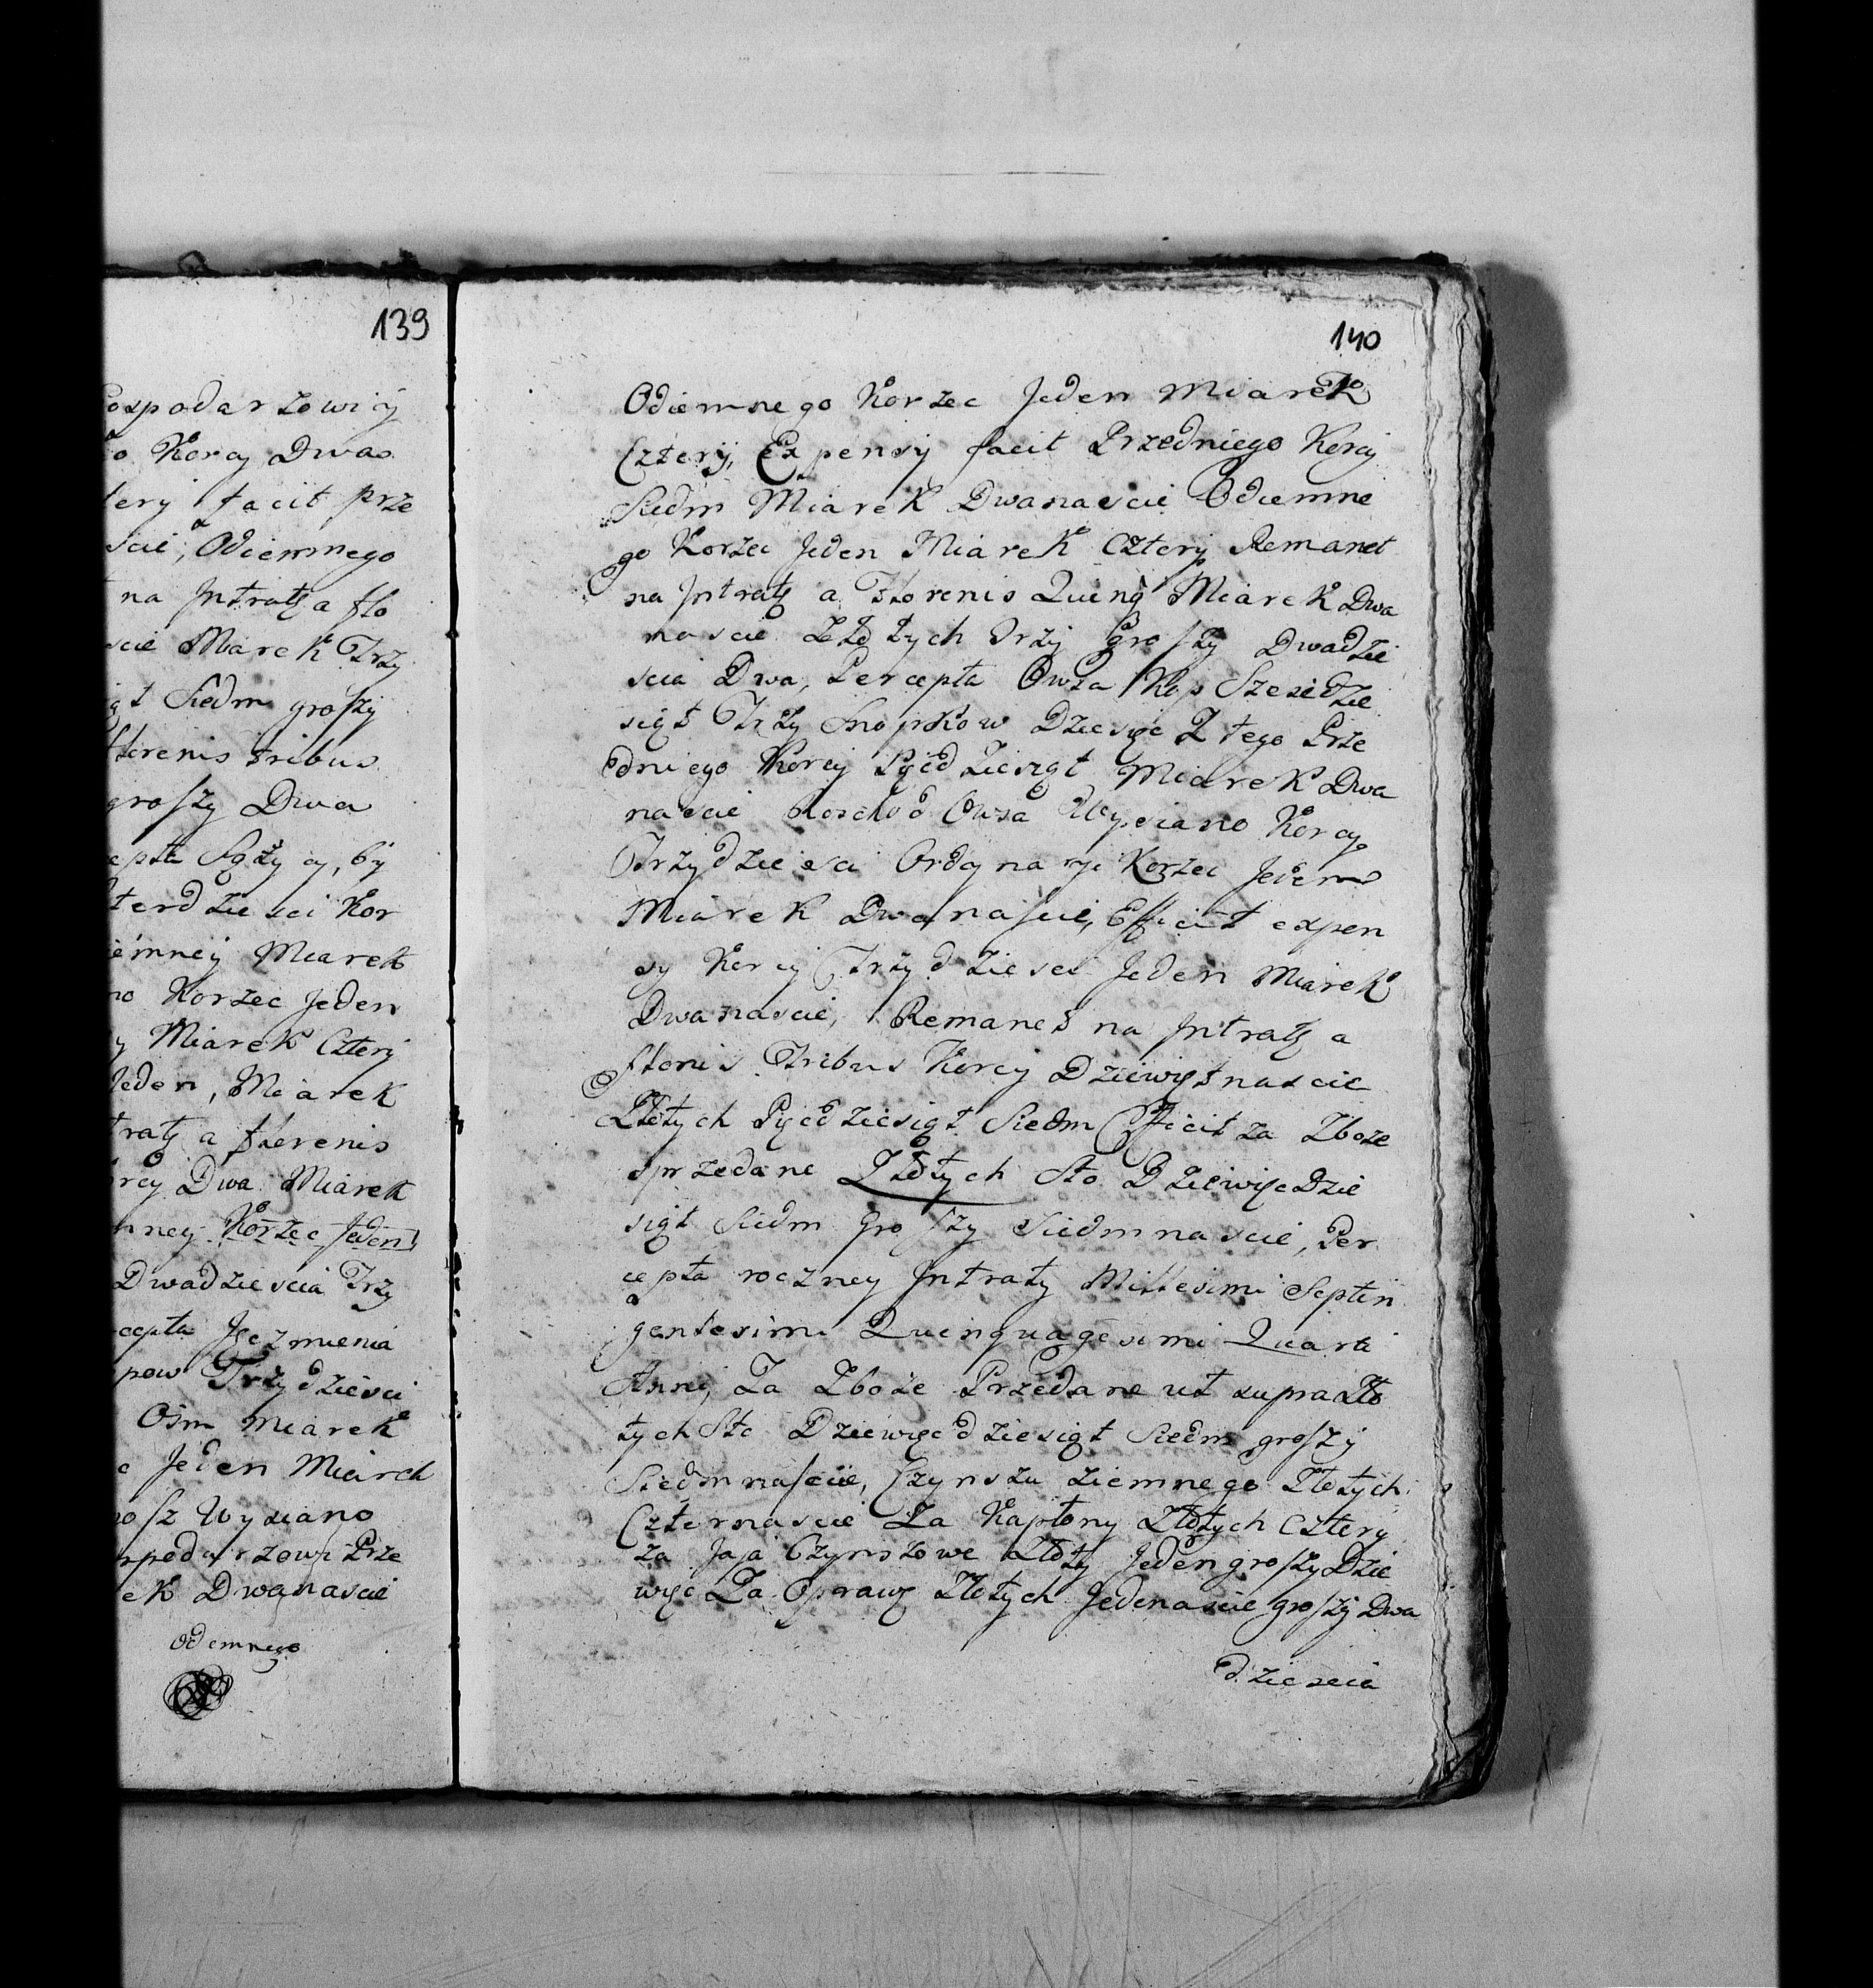 139
ospodarzowicÿ
o Korcy Dwa
tery facit prze
scie, Odiemnego
na Jntratę a flo
scie Miarek Trzy
ąt Siedm groszÿ
florenis tribus
groszy Dwa
epta Sążycy, by
terdziesci Kor
iemneÿ Miarek
no Korzec Jeden
y Miarek Czterÿ
Jeden, Miarek
tratę a florenis
rcy Dwa Miarek
nney Korzec Jeden
Dwadziescia Trzy
cepta Jęczmienia
pow Trzydziesci
Osm Miarek
c Jeden Miarek
osz Wysiano
spodarzowi Prze
ek Dwanascie
Odemnego
140
Odiemnego Korzec Jeden Miarek
Czterÿ, Expensÿ facit Przedniego Korcÿ
Siedm Miarek Dwanascie Odiemne
go Korzec Jeden Miarek Czterÿ Remanet
na Jntratę a Florenis Quinq Miarek Dwa
nascie Złotych Trzÿ Groszy Dwadzie
scia Dwa, Percepta Owsa Kop Szescdzie
siąt Trzy Snopkow Dziesięc Z tego Prze
dniego Korcÿ Pięcdziesiąt Miarek Dwa
nascie Roschod Owsa Wysiano Korcy
Trzydziesci Ordynaryi Korzec Jeden
Miarek Dwanascie, Efficit expen
sy Korcÿ Trzydziesci Jeden Miarek
Dwanascie, Remanet na Jntratę a
flonis Tribus Korcy Dziewiętnascie
Złotych Pięcdziesiąt Siedm Efficit za Zboze
sprzedane Złotych Sto Dziewięcdzie
siąt Siedm Groszy Siedmnascie, Per
cepta roczney Jntraty Millesimi Septin
gentesimi Quinquagesimi Quarti
Anni, Za Zboze Przedane ut supra Zło
tych Sto Dziewięcdziesiąt Siedm groszÿ
Siedmnascie, Czynszu ziemnego Złotych
Czternascie Za Kapłony Złotych Czterÿ
za Jaja Czynszowe Złoty Jeden groszy Dzie
więc Za Oprawę Złotych Jedenascie groszy Dwa
dziescia